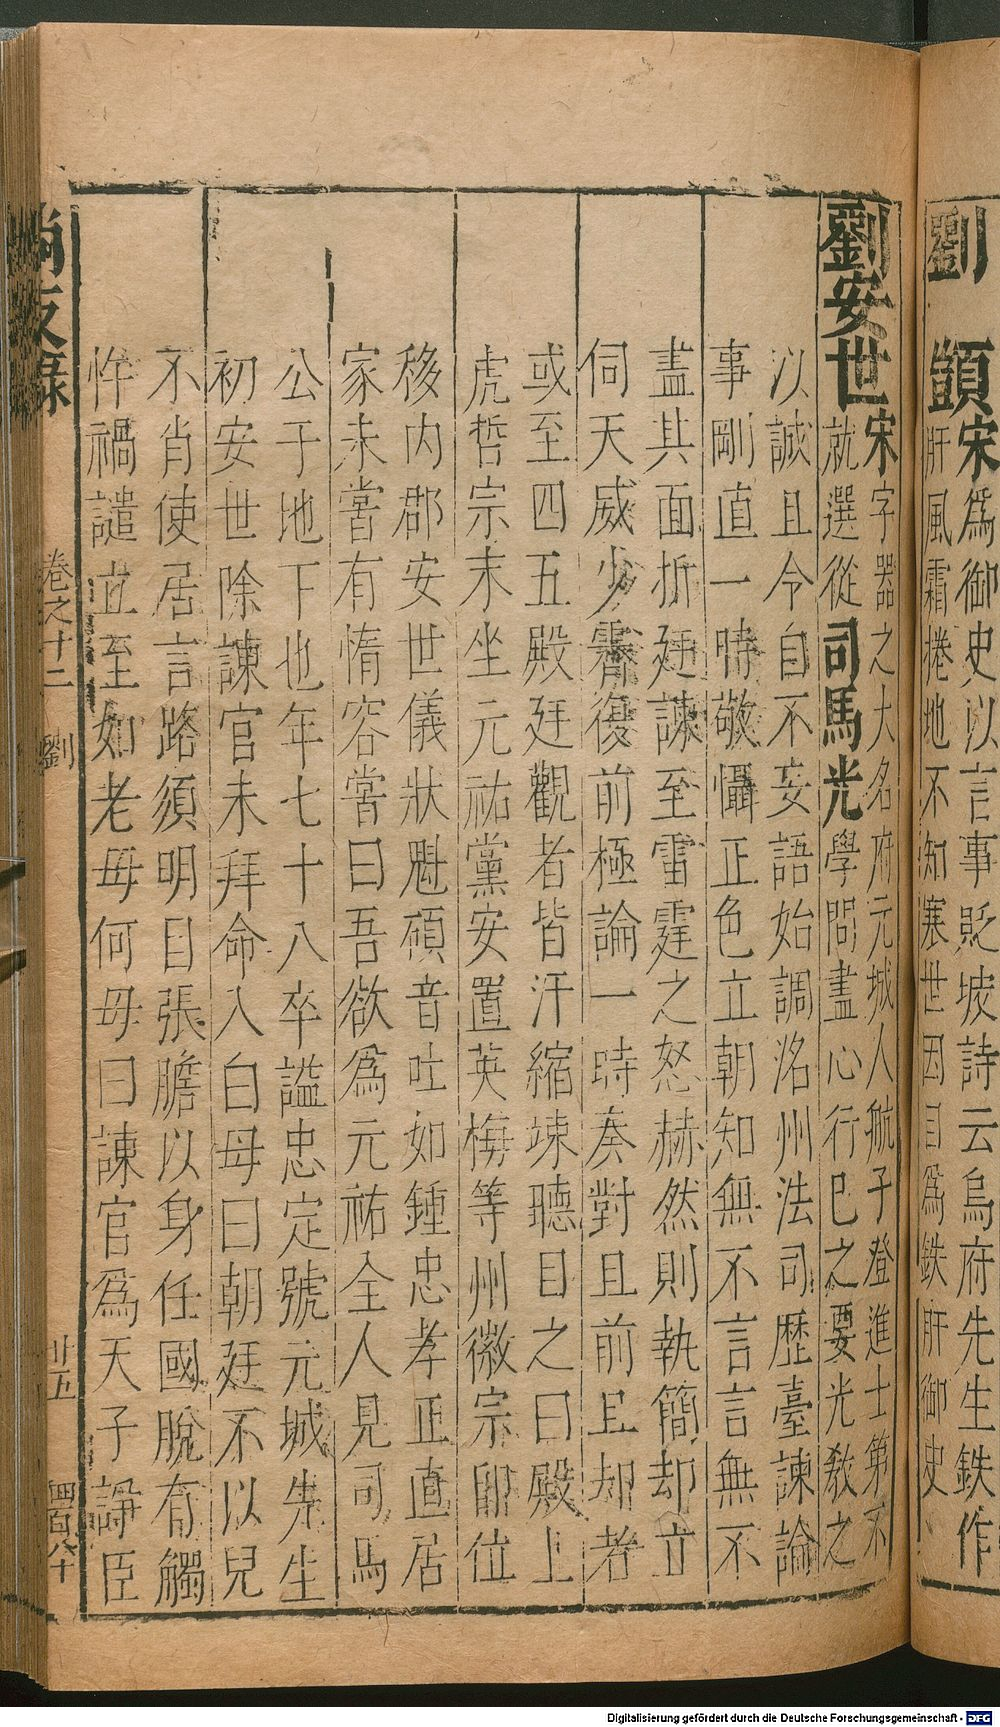 劉顗宋爲御史以言事貶坡詩云烏府先生鉄作
肝風霜捲地不知寒世因目爲鉄肝御史
劉安世宋字器之大名府元城人航子登進士第不
就選從司馬光學問盡心行己之要光敎之
以誠且令自不妄語始調洺州法司歷臺諫論
事剛直一時敬懾正色立朝知無不言言無不
盡其面折廷諫至雷霆之怒赫然則執簡却立
伺天威少霽復前極論一時奏對且前且却者
或至四五殿廷觀者皆汗縮竦聽目之曰殿上
虎哲宗末坐元祐黨安置英梅等州徽宗卽位
移内郡安世儀狀魁碩音吐如鍾忠孝正直居
家未嘗有惰容嘗曰吾欲爲元祐全人見司馬
公于地下也年七十八卒謚忠定號元城先生
初安世除諫官未拜命入白母曰朝廷不以兒
不肖使居言路須明目張膽以身任國脫有觸
忤禍譴立至如老母何母曰諫官爲天子諍臣
尚友錄 卷之十二 劉 廿五 四百八十
Digitalisierung gefördert durch die Deutsche Forschungsgemeinschaft - DFG